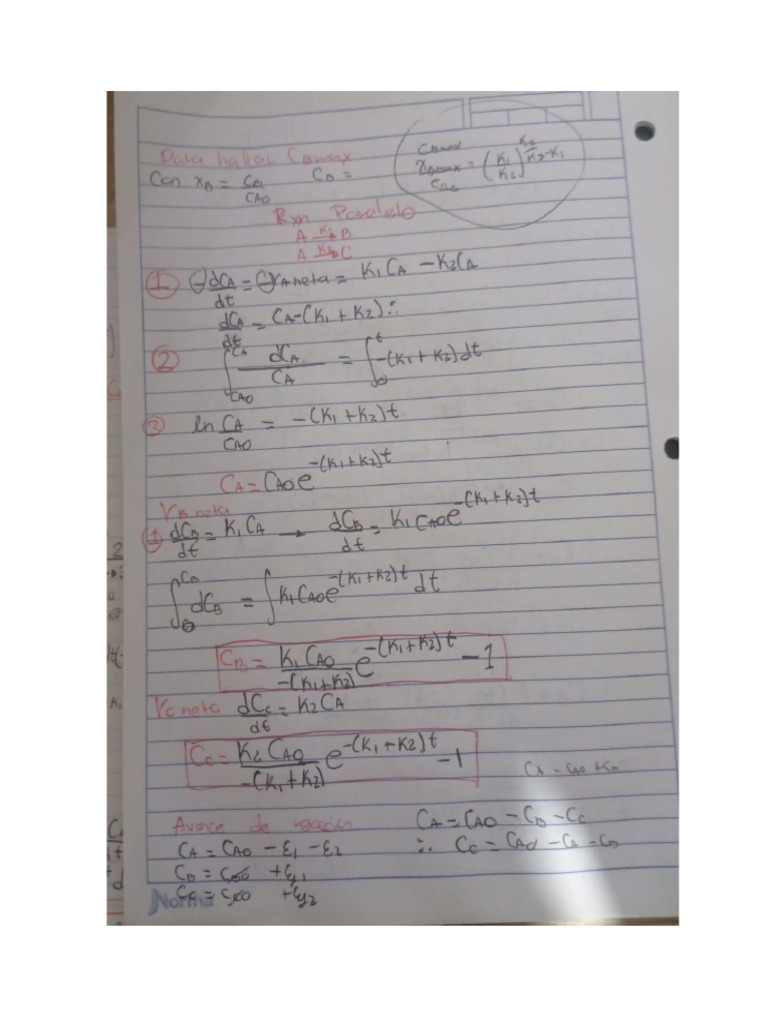 Para hallar CBmax
Con xB = CB/CA0    CB =
CBmax
xBmax/CA0 = (K1/K2)^(K2/K2-K1)
Rxn Paralelo
A K1→ B
A K2→ C
① ⊖dCA/dt = ⊖rA neta = K1CA - K2CA
dCA/dt = CA-(K1 + K2) ∴
② ∫CA0^CA dCA/CA = ∫0^t -(K1+K2)dt
③ ln CA/CA0 = -(K1+K2)t
CA = CA0 e^-(K1+K2)t
rB neta
① dCB/dt = K1CA → dCB/dt = K1CA0e^-(K1+K2)t
∫0^CB dCB = ∫K1CA0e^-(K1+K2)t dt
CB = K1CA0/-(K1+K2) e^-(K1+K2)t - 1
rC neta dCC/dt = K2CA
CC = K2CA0/-(K1+K2) e^-(K1+K2)t - 1
CA = CA0 +
Avance de reacción
CA = CA0 - ε1 - ε2
CB = CB0 + ε1
CC = CC0 + ε2
CA = CA0 - CB - CC
∴ CC = CA0 - CA - CB
Norma